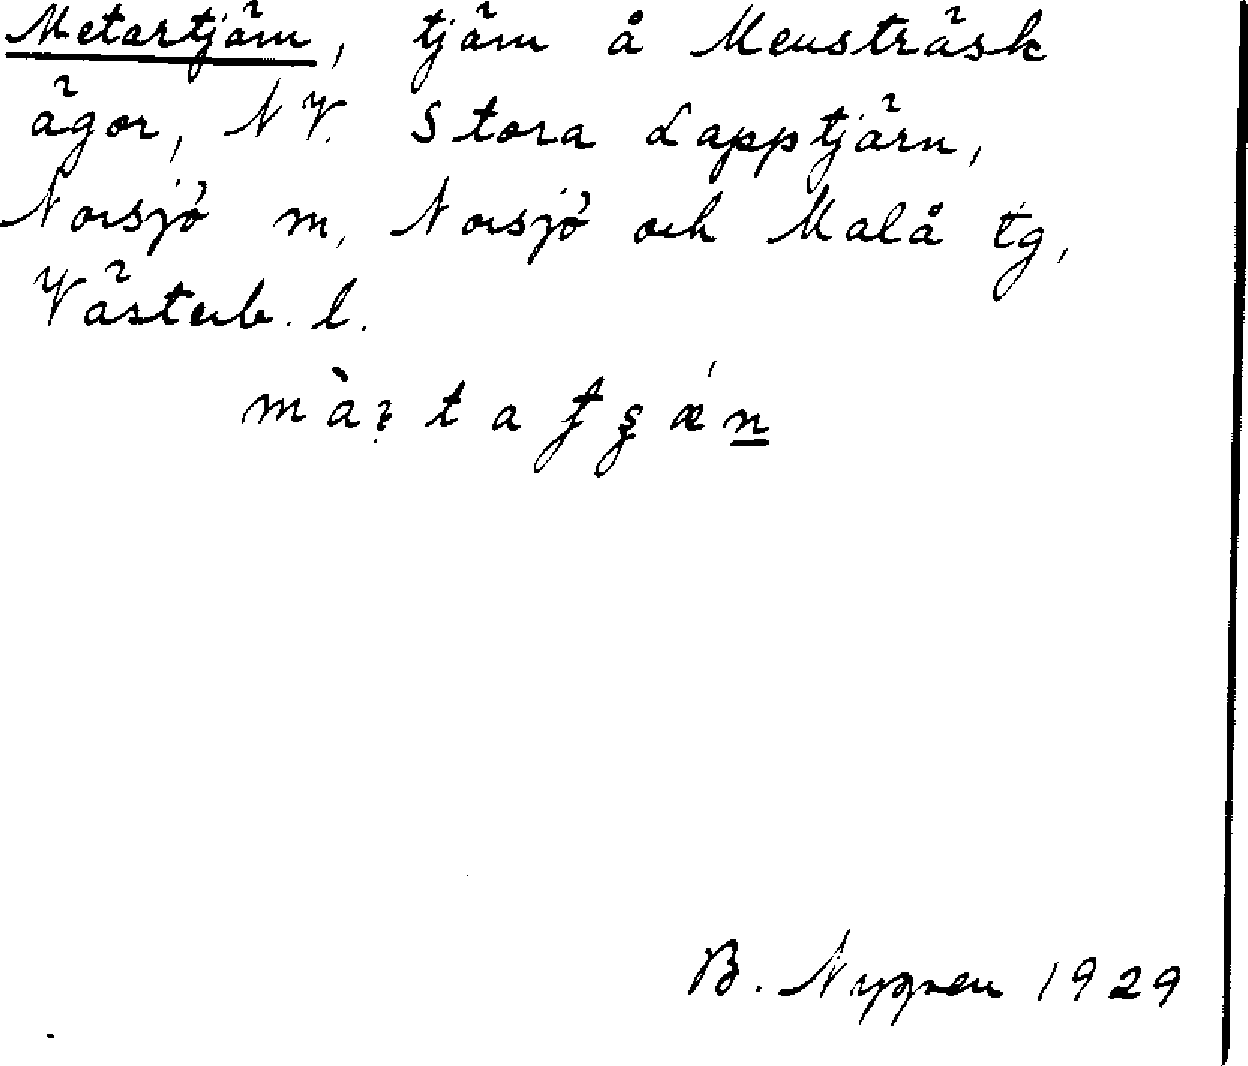 Metartjärn, tjärn å Mensträsk
ägor, NV. Stora Lapptjärn,
Norsjö m, Norsjö och Malå tg,
Västerb. l.
B. Nygren 1929